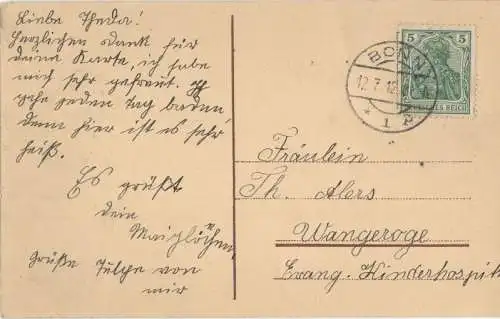 Liebe Theda!
Herzlichen Dank für
deine Karte, ich habe
mich sehr gefreut. Ich
gehe jeden Tag baden
denn hier ist es sehr
heiß.
Es grüßt
dein
Maiglöckchen
Grüße Tulpe von
mir
5 5
BONN
12.7.12
* 1 P
DEUTSCHES REICH
Fräulein
Th. Alers
Wangeroge
Evang. Kinderhospit